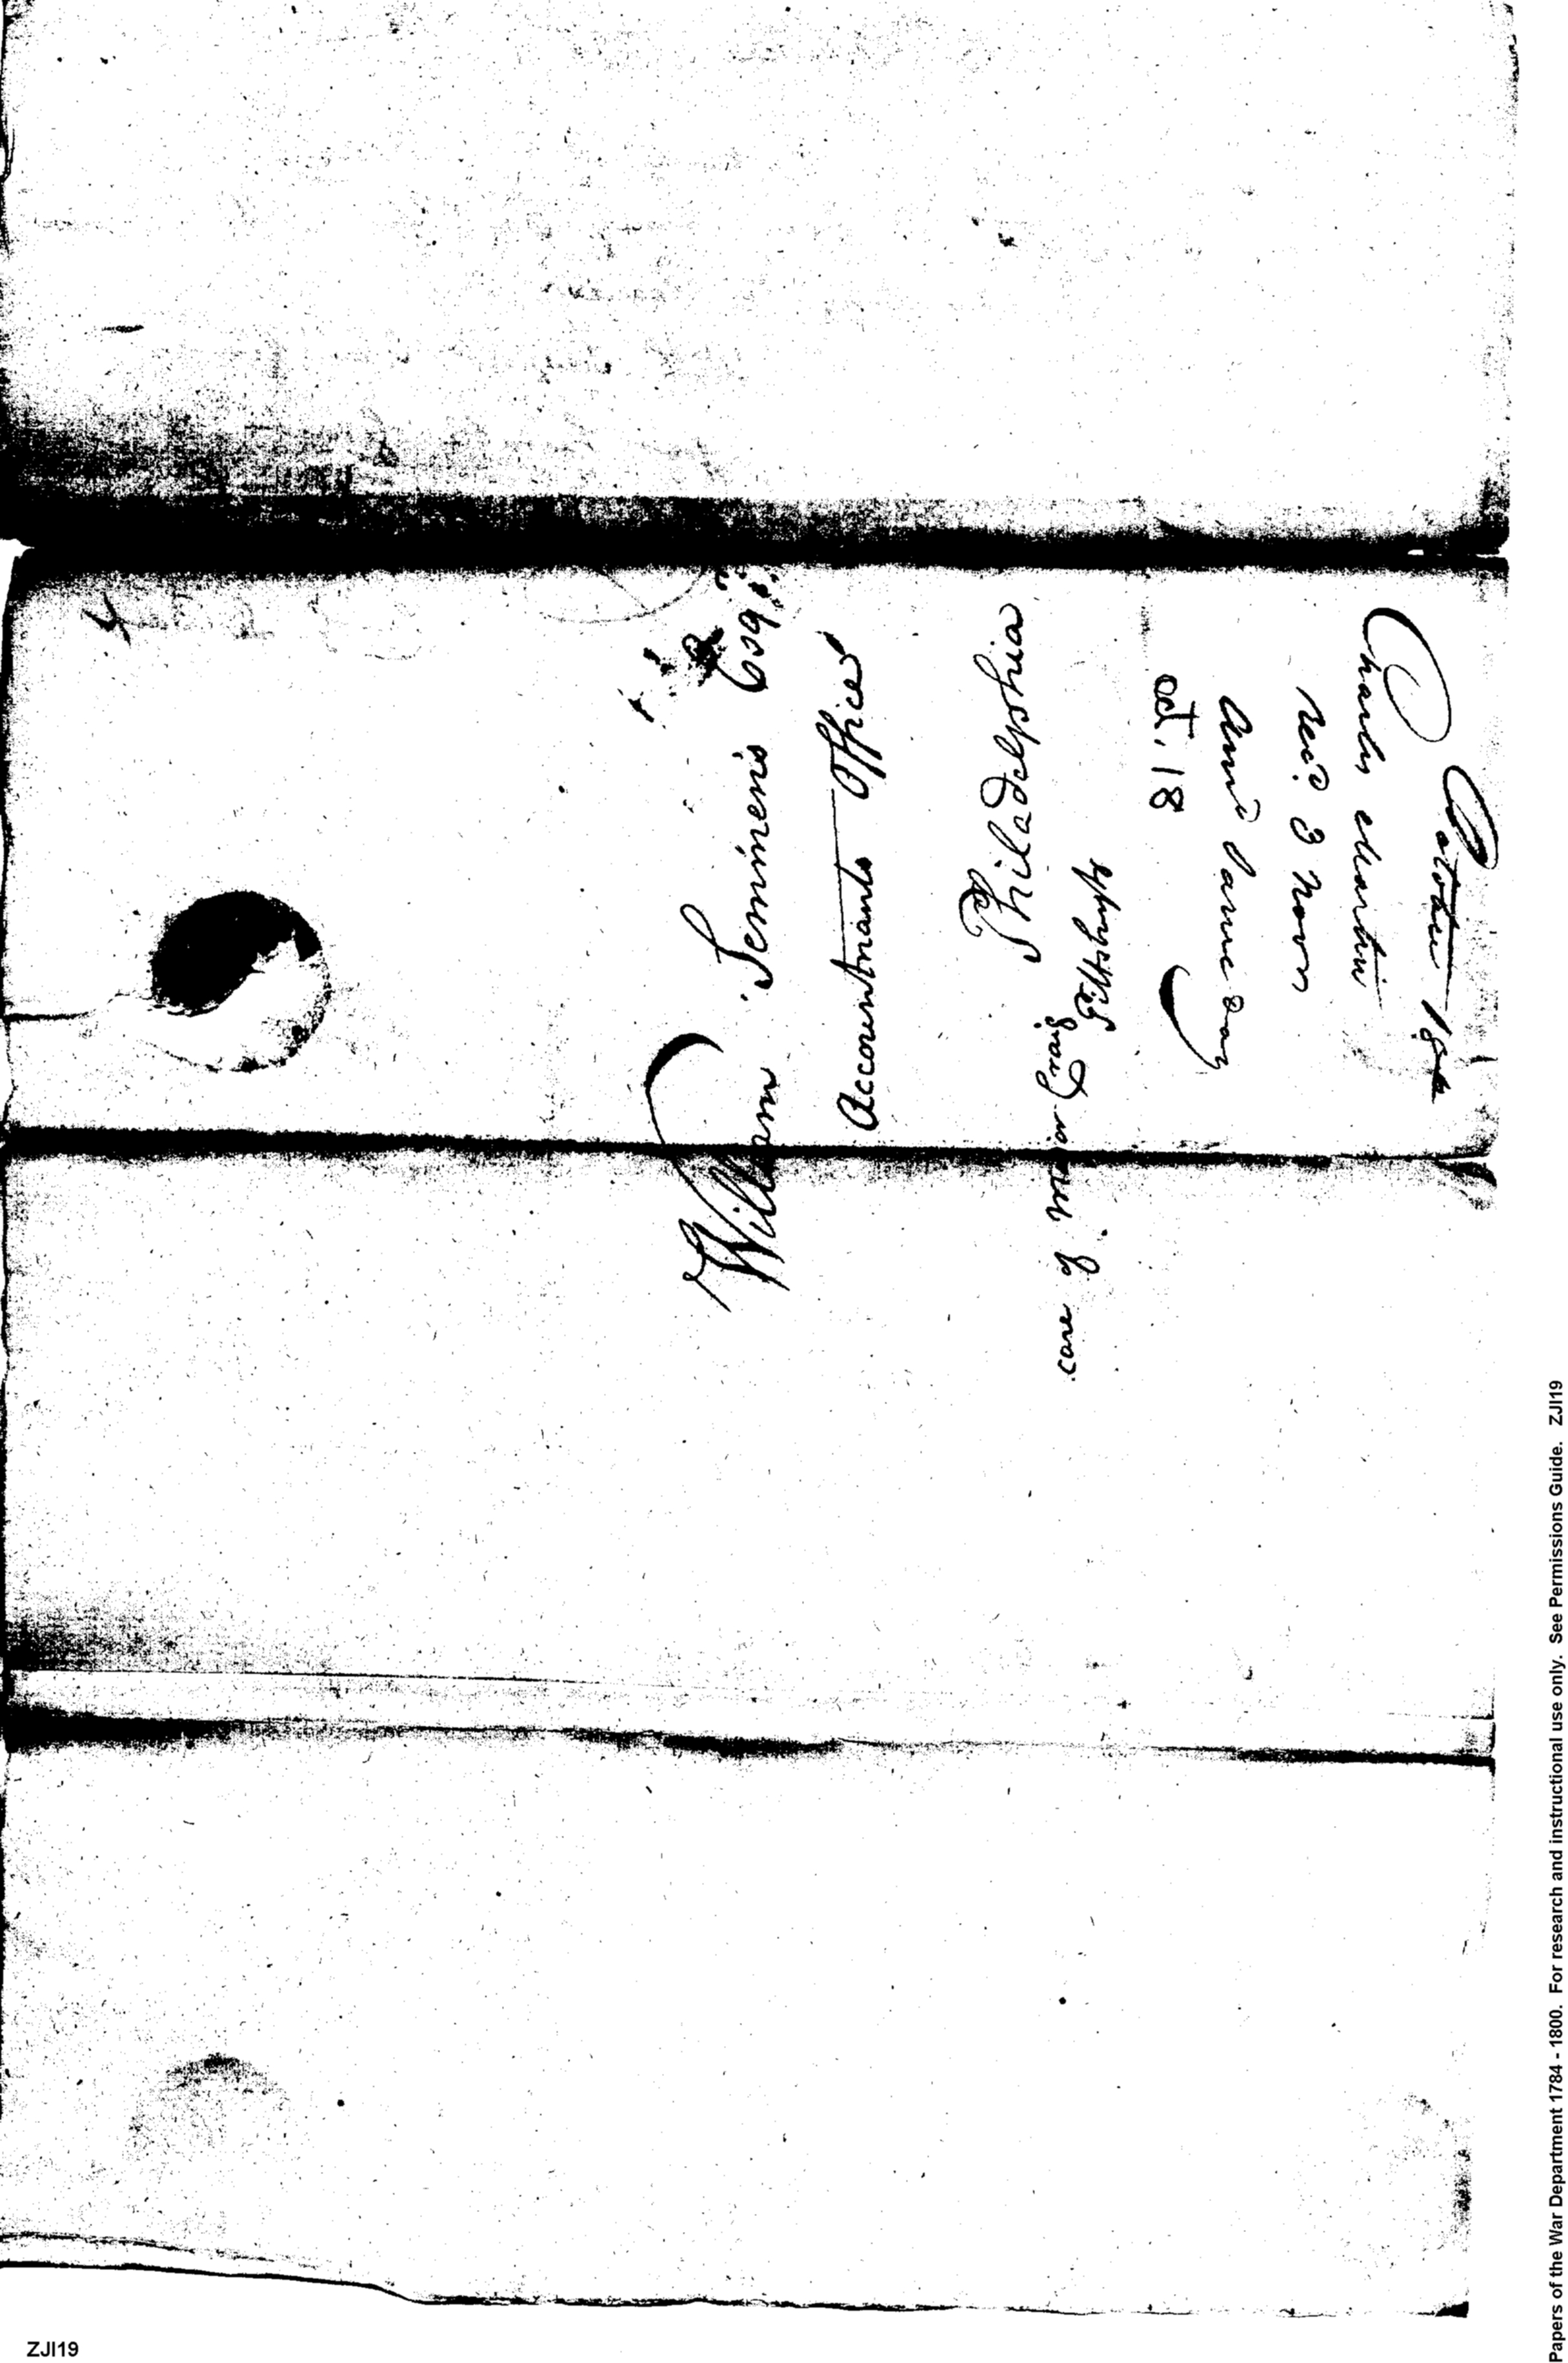 William Simmens Esqr
Accountmants Office
Philadelphia
care of major Craig
Pittsburgh
October 180
Charles Martin
Recd. 3 Novr
Ansd Same day
Oct. 18
Papers of the War Department 1784 - 1800. For research and instructional use only. See Permissions Guide. ZJI19
ZJI19